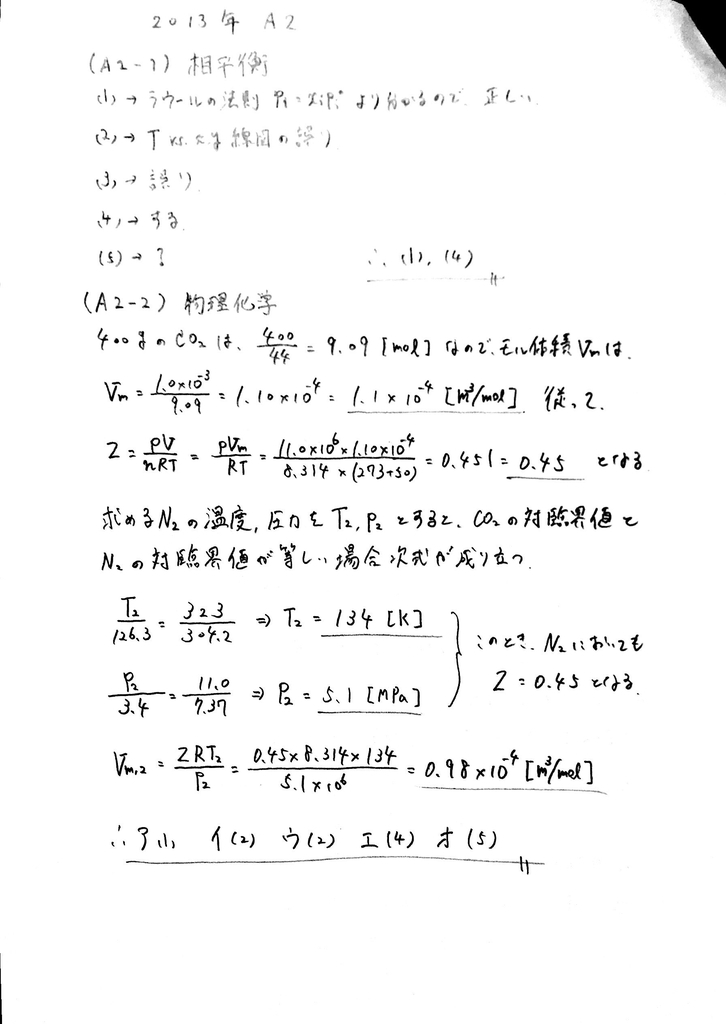 2013年 A2
(A2-1) 相平衡
(1) → ラウールの法則 Pi = xiPi° より分かるので、正しい
(2) → T vs. 線図の誤り
(3) → 誤り
(4) → する
(5) → ?
∴ (1), (4)
(A2-2) 物理化学
400gのCO₂は、400/44 = 9.09 [mol] なので、モル体積Vmは、
Vm = 1.0×10⁻³/9.09 = 1.10×10⁻⁴ = 1.1×10⁻⁴ [m³/mol] 従って、
Z = PV/nRT = PVm/RT = 11.0×10⁶×1.10×10⁻⁴/8.314×(273+50) = 0.451 = 0.45 となる
求めるN₂の温度, 圧力をT₂, P₂とすると、CO₂の対臨界値と
N₂の対臨界値が等しい場合次式が成り立つ.
T₂/126.3 = 323/304.2 ⇒ T₂ = 134 [K]
このとき、N₂においても
P₂/3.4 = 11.0/7.37 ⇒ P₂ = 5.1 [MPa]
Z = 0.45 となる
Vm,2 = ZRT₂/P₂ = 0.45×8.314×134/5.1×10⁶ = 0.98×10⁻⁴ [m³/mol]
∴ ア(1) イ(2) ウ(2) エ(4) オ(5)